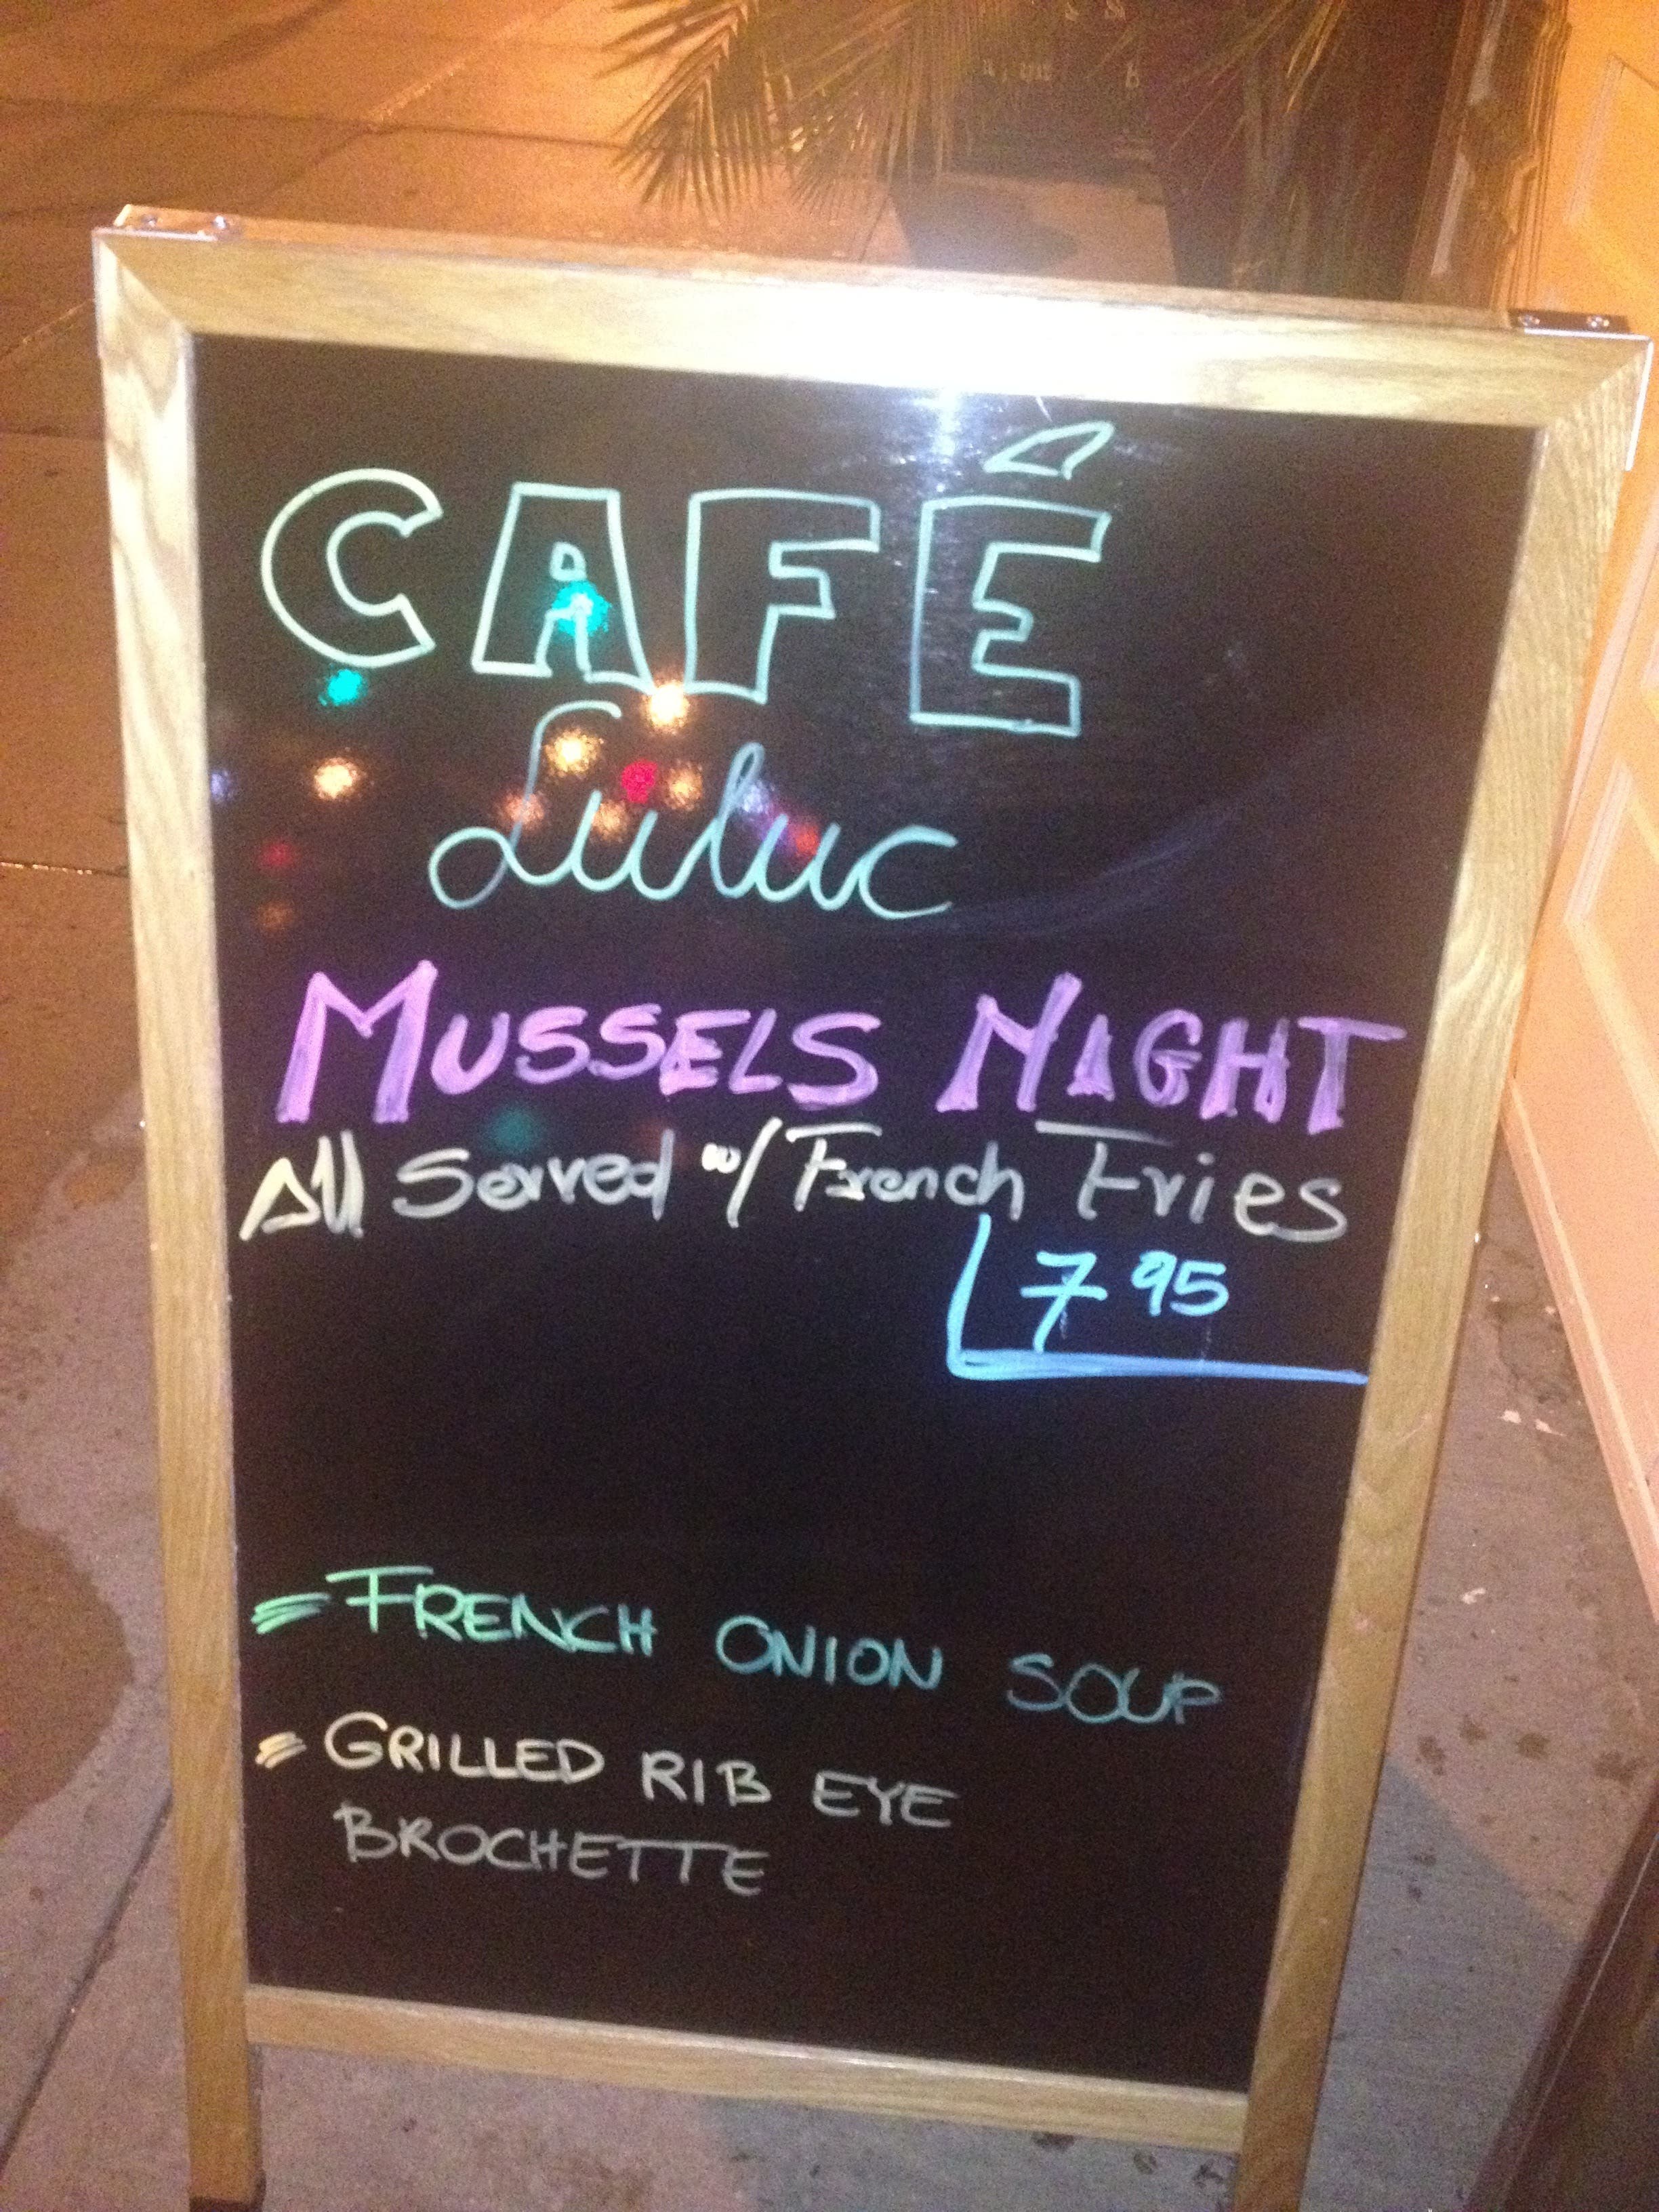 CAFÉ
Luluc
MUSSELS NIGHT
All Served w/ French Fries
7 95
= FRENCH ONION SOUP
= GRILLED RIB EYE
BROCHETTE